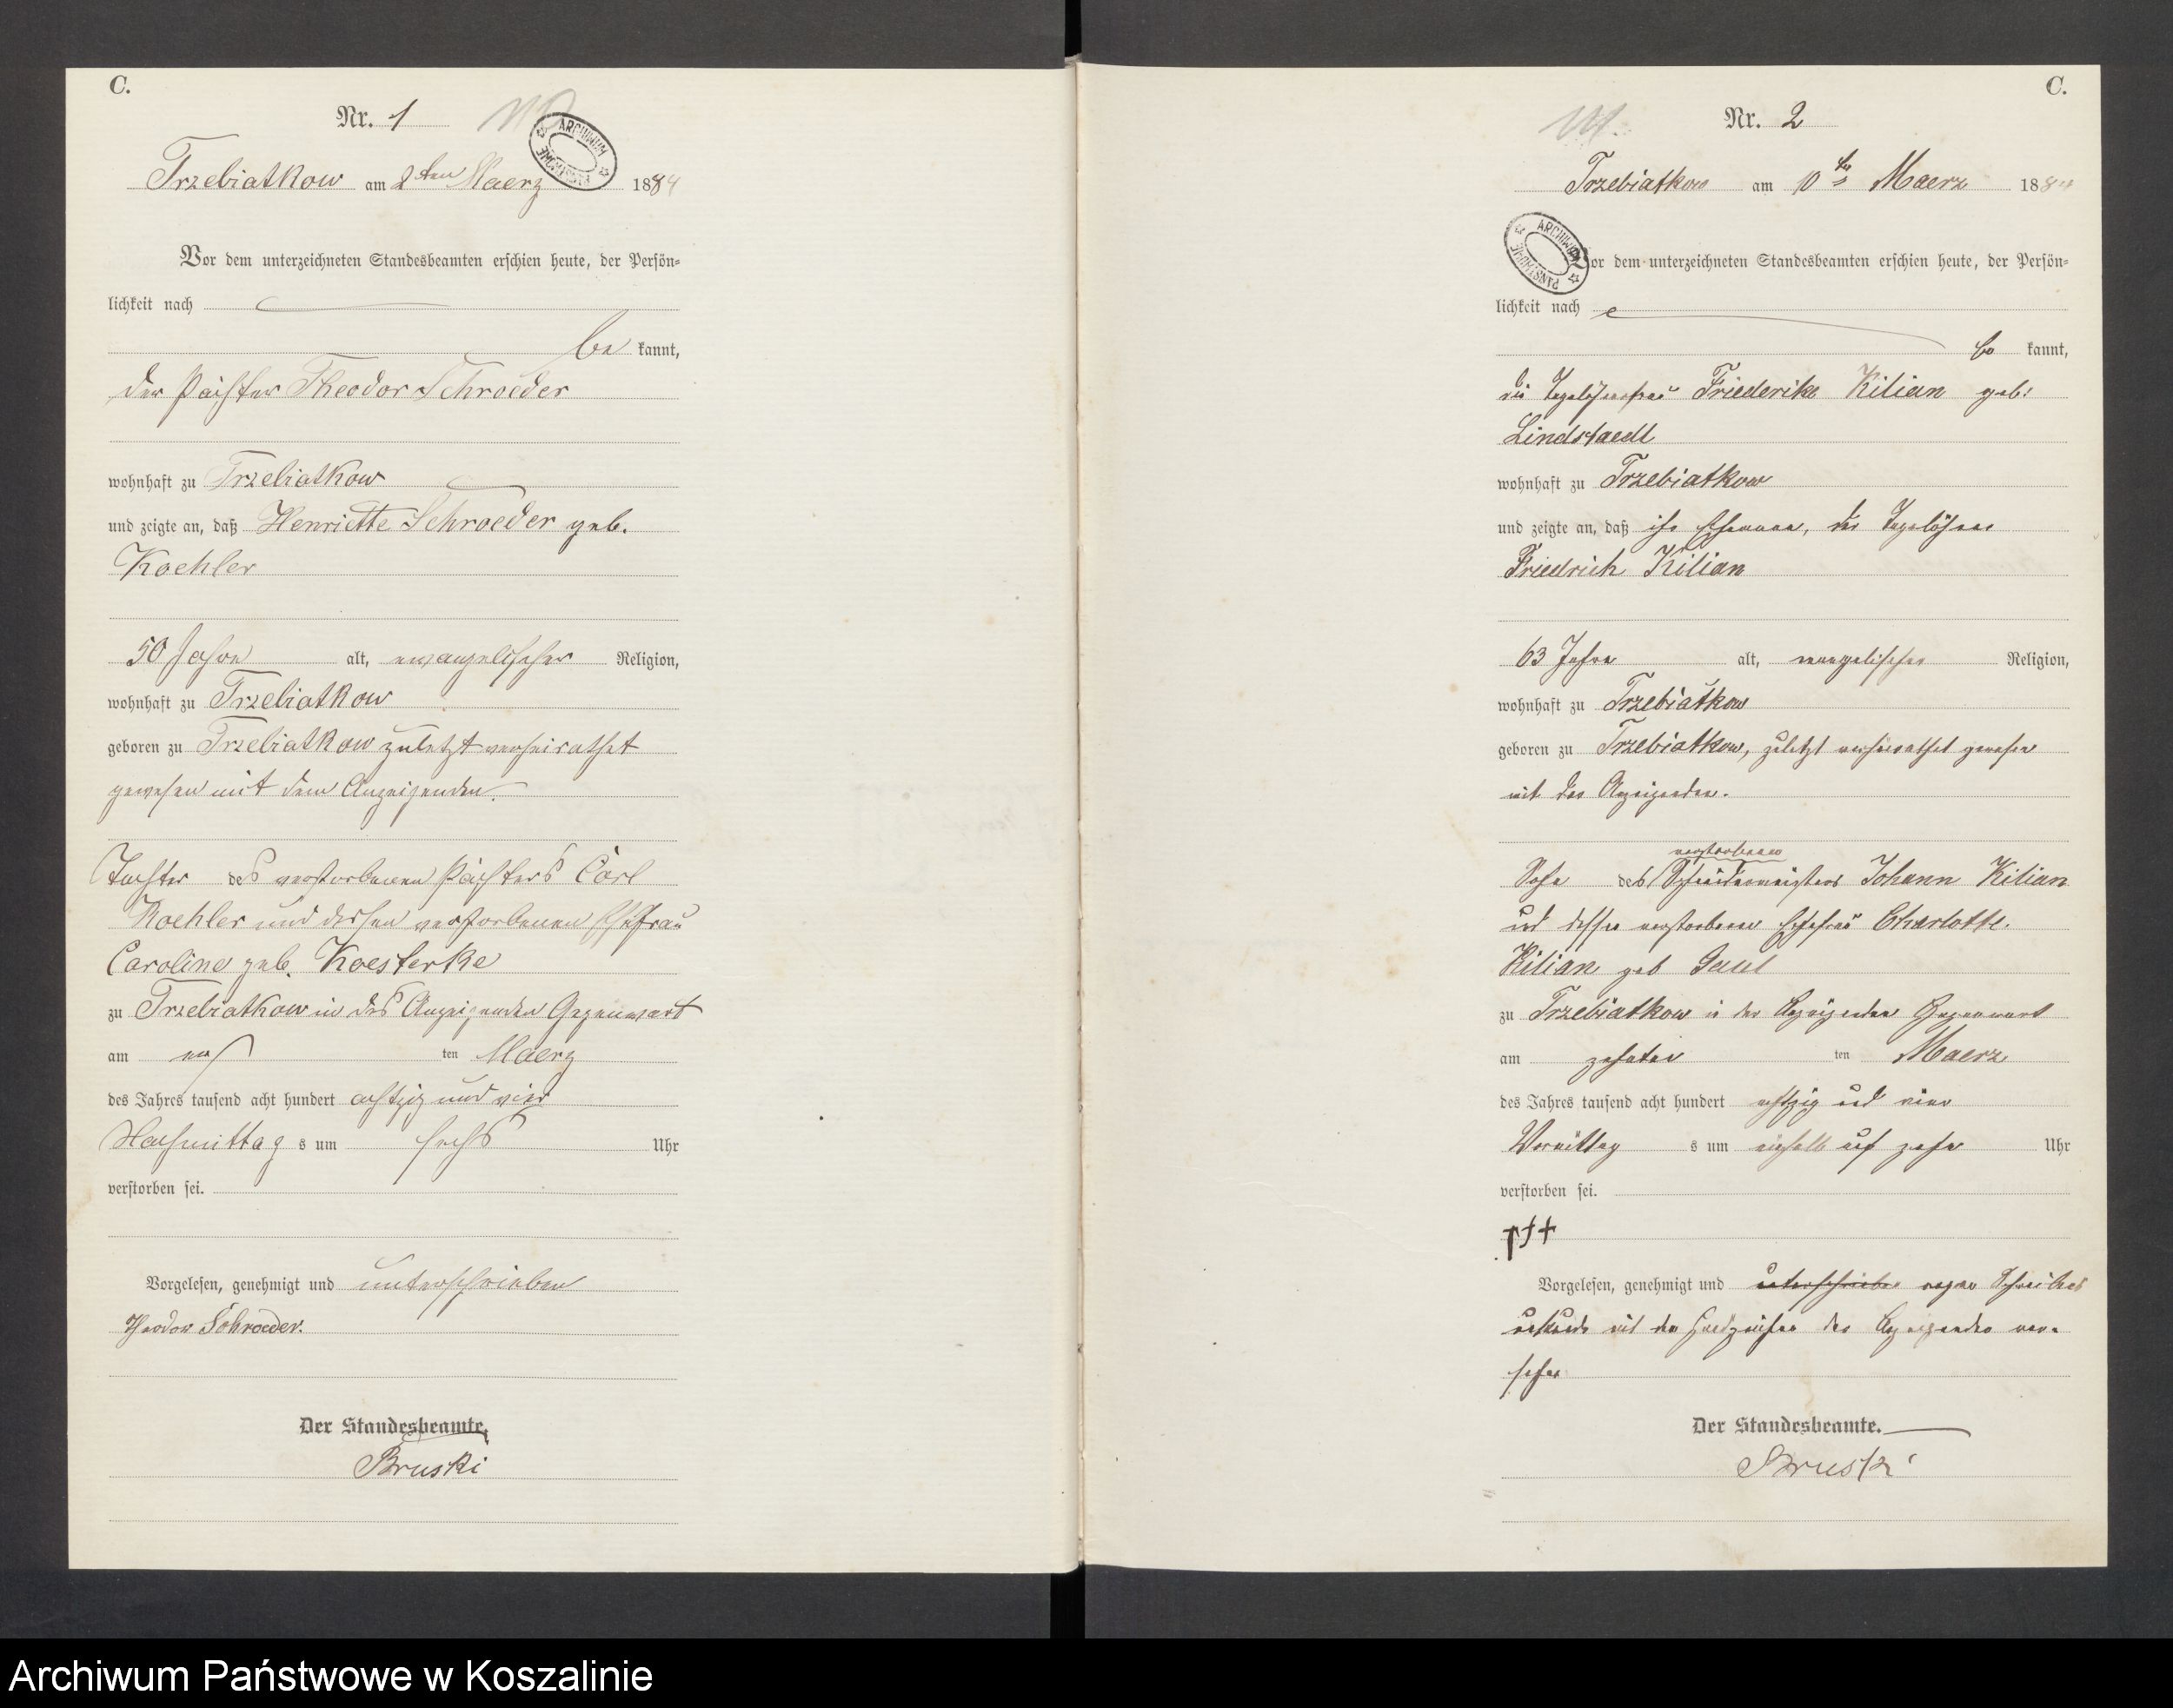 C.
Nr. 1
ARCHIWUM PAŃSTWOWE
Trzebiatkow am 2ten Maerz 1884
Vor dem unterzeichneten Standesbeamten erschien heute, der Persön-
lichkeit nach
be kannt,
der Pächter Theodor Schroeder
wohnhaft zu Trzebiatkow
und zeigte an, daß Henriette Schroeder geb.
Koehler
50 Jahre alt, evangelischer Religion,
wohnhaft zu Trzebiatkow
geboren zu Trzebiatkow zuletzt verheirathet
gewesen mit dem Anzeigenden.
Tochter des verstorbenen Pächters Carl
Koehler und dessen verstorbenen Ehefrau
Caroline geb. Koesterke
zu Trzebiatkow in des Anzeigenden Gegenwart
am ten Maerz
des Jahres tausend acht hundert achtzig und vier
Nachmittag s um sechs Uhr
verstorben sei.
Vorgelesen, genehmigt und unterschrieben
Theodor Schroeder.
Der Standesbeamte.
Bruski
C.
Nr. 2
Trzebiatkow am 10ten Maerz 1884
ARCHIWUM PAŃSTWOWE
Vor dem unterzeichneten Standesbeamten erschien heute, der Persön-
lichkeit nach
be kannt,
die Tagelöhnerfrau Friederike Kilian geb:
Lindstaedt
wohnhaft zu Trzebiatkow
und zeigte an, daß ihr Ehemann, der Tagelöhner
Friedrich Kilian
63 Jahre alt, evangelischer Religion,
wohnhaft zu Trzebiatkow
geboren zu Trzebiatkow, zuletzt verheirathet gewesen
mit der Anzeigenden.
verstorbenen
Sohn des Schneidermeisters Johann Kilian
und dessen verstorbene Ehefrau Charlotte.
Kilian geb
zu Trzebiatkow in der Anzeigenden Gegenwart
am zehnten ten Maerz
des Jahres tausend acht hundert achtzig und vier
Vormittag s um einhalb auf zehn Uhr
verstorben sei.
†††
Vorgelesen, genehmigt und unterschrieben wegen Schreibens
unkunde mit den Handzeichen der Anzeigenden ver-
sehen
Der Standesbeamte.
Bruski
Archiwum Państwowe w Koszalinie